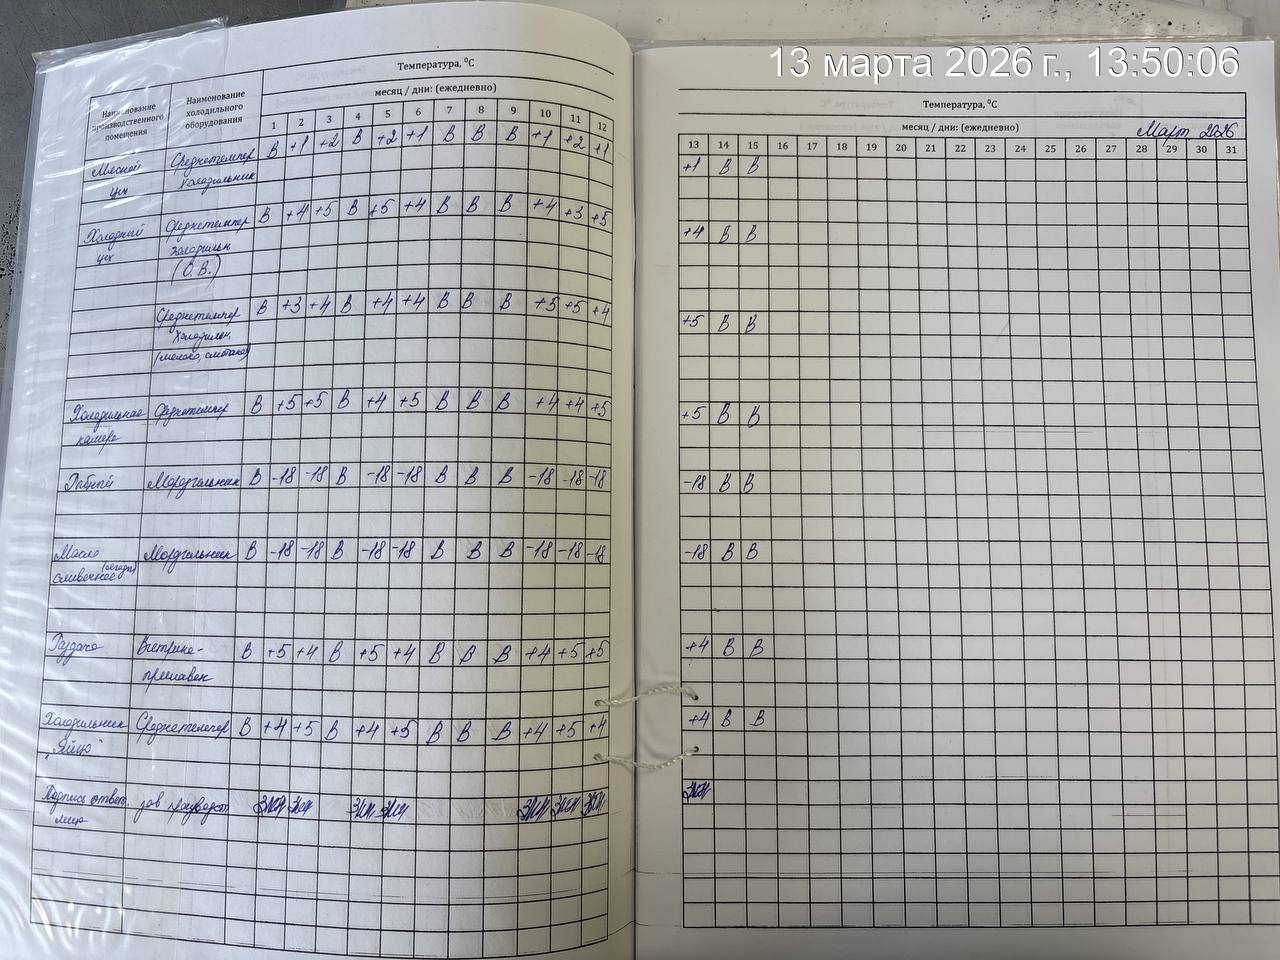 13 марта 2026 г., 13:50:06
Наименование производственного помещения
Наименование холодильного оборудования
Температура, ⁰С
месяц / дни: (ежедневно)
1 2 3 4 5 6 7 8 9 10 11 12
Мясной цех Среднетемпер холодильник В +1 +2 В +2 +1 В В В +1 +2 +1
Холодный цех Среднетемпер холодильн (О.В.) В +4 +5 В +5 +4 В В В +4 +3 +5
Среднетемпер холодильн. (молоко, сметана) В +3 +4 В +4 +4 В В В +5 +5 +4
Холодильная камера Среднетемпер В +5 +5 В +4 +5 В В В +4 +4 +5
Рыбный Морозильник В -18 -18 В -18 -18 В В В -18 -18 -18
Масло сливочное Морозильник В -18 -18 В -18 -18 В В В -18 -18 -18
Раздача Витрина-прилавок В +5 +4 В +5 +4 В В В +4 +5 +5
Холодильник "Яйцо" Среднетемпер В +4 +5 В +4 +5 В В В +4 +5 +4
Подпись ответ. лица зав производст
Температура, ⁰С
месяц / дни: (ежедневно) Март 2026
13 14 15 16 17 18 19 20 21 22 23 24 25 26 27 28 29 30 31
+1 В В
+4 В В
+5 В В
+5 В В
-18 В В
-18 В В
+4 В В
+4 В В